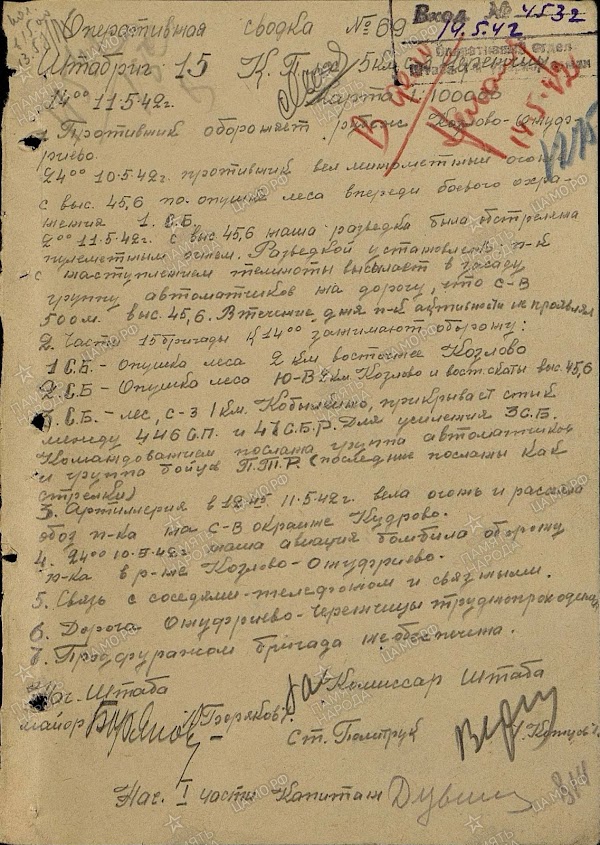 Вход № 4532
14.5.42
Оперативный отдел
Оперативная сводка № 69
Штабриг 15 К.П. 5 км
14⁰⁰ 11.5.42г. Карта 100000
14.5.42
1. Противник обороняет Козлово-Онуф-
риево.
24⁰⁰ 10.5.42г. противник вел минометный огонь
с выс. 45,6 по опушке леса впереди боевого охра-
нения 1 С.Б.
2⁰⁰ 11.5.42г. с выс 45,6 наша разведка была обстреляна
пулеметным огнем. Разведкой установлено п-к
с наступлением темноты высылает в засаду
группу автоматчиков на дорогу, что С-В
500м. выс. 45,6. В течение дня п-к активности не проявлял
2. Части 15 бригады к 14⁰⁰ занимают оборону:
1 С.Б. - Опушка леса 2 км восточнее Козлово
2 С.Б. - Опушка леса Ю-В 2 км. Козлово и вост. скаты выс. 45,6
3 С.Б. - лес, С-З 1 км. Кобылкино, прикрывает стык
между 446 С.П. и 47 С.Б.Р. Для усиления 3 С.Б.
Командованием послана группа автоматчиков
и группа бойцов П.Т.Р. (последние посланы как
стрелки)
3. Артиллерия в 11.5.42г. вела огонь и рассеяла
обоз п-ка на С-В окраине Кудрово.
4. 24⁰⁰ 10.5.42г наша авиация бомбила оборону
п-ка в р-не Козлово-Онуфриево.
5. Связь с соседями-телефоном и связными.
6. Дорога Онуфриево-Черенчицы труднопроходима
7. Продфуражом бригада необеспечена.
Нач. Штаба За Комиссар Штаба
майор
Ст. Политрук
Нач. 1 части Капитан